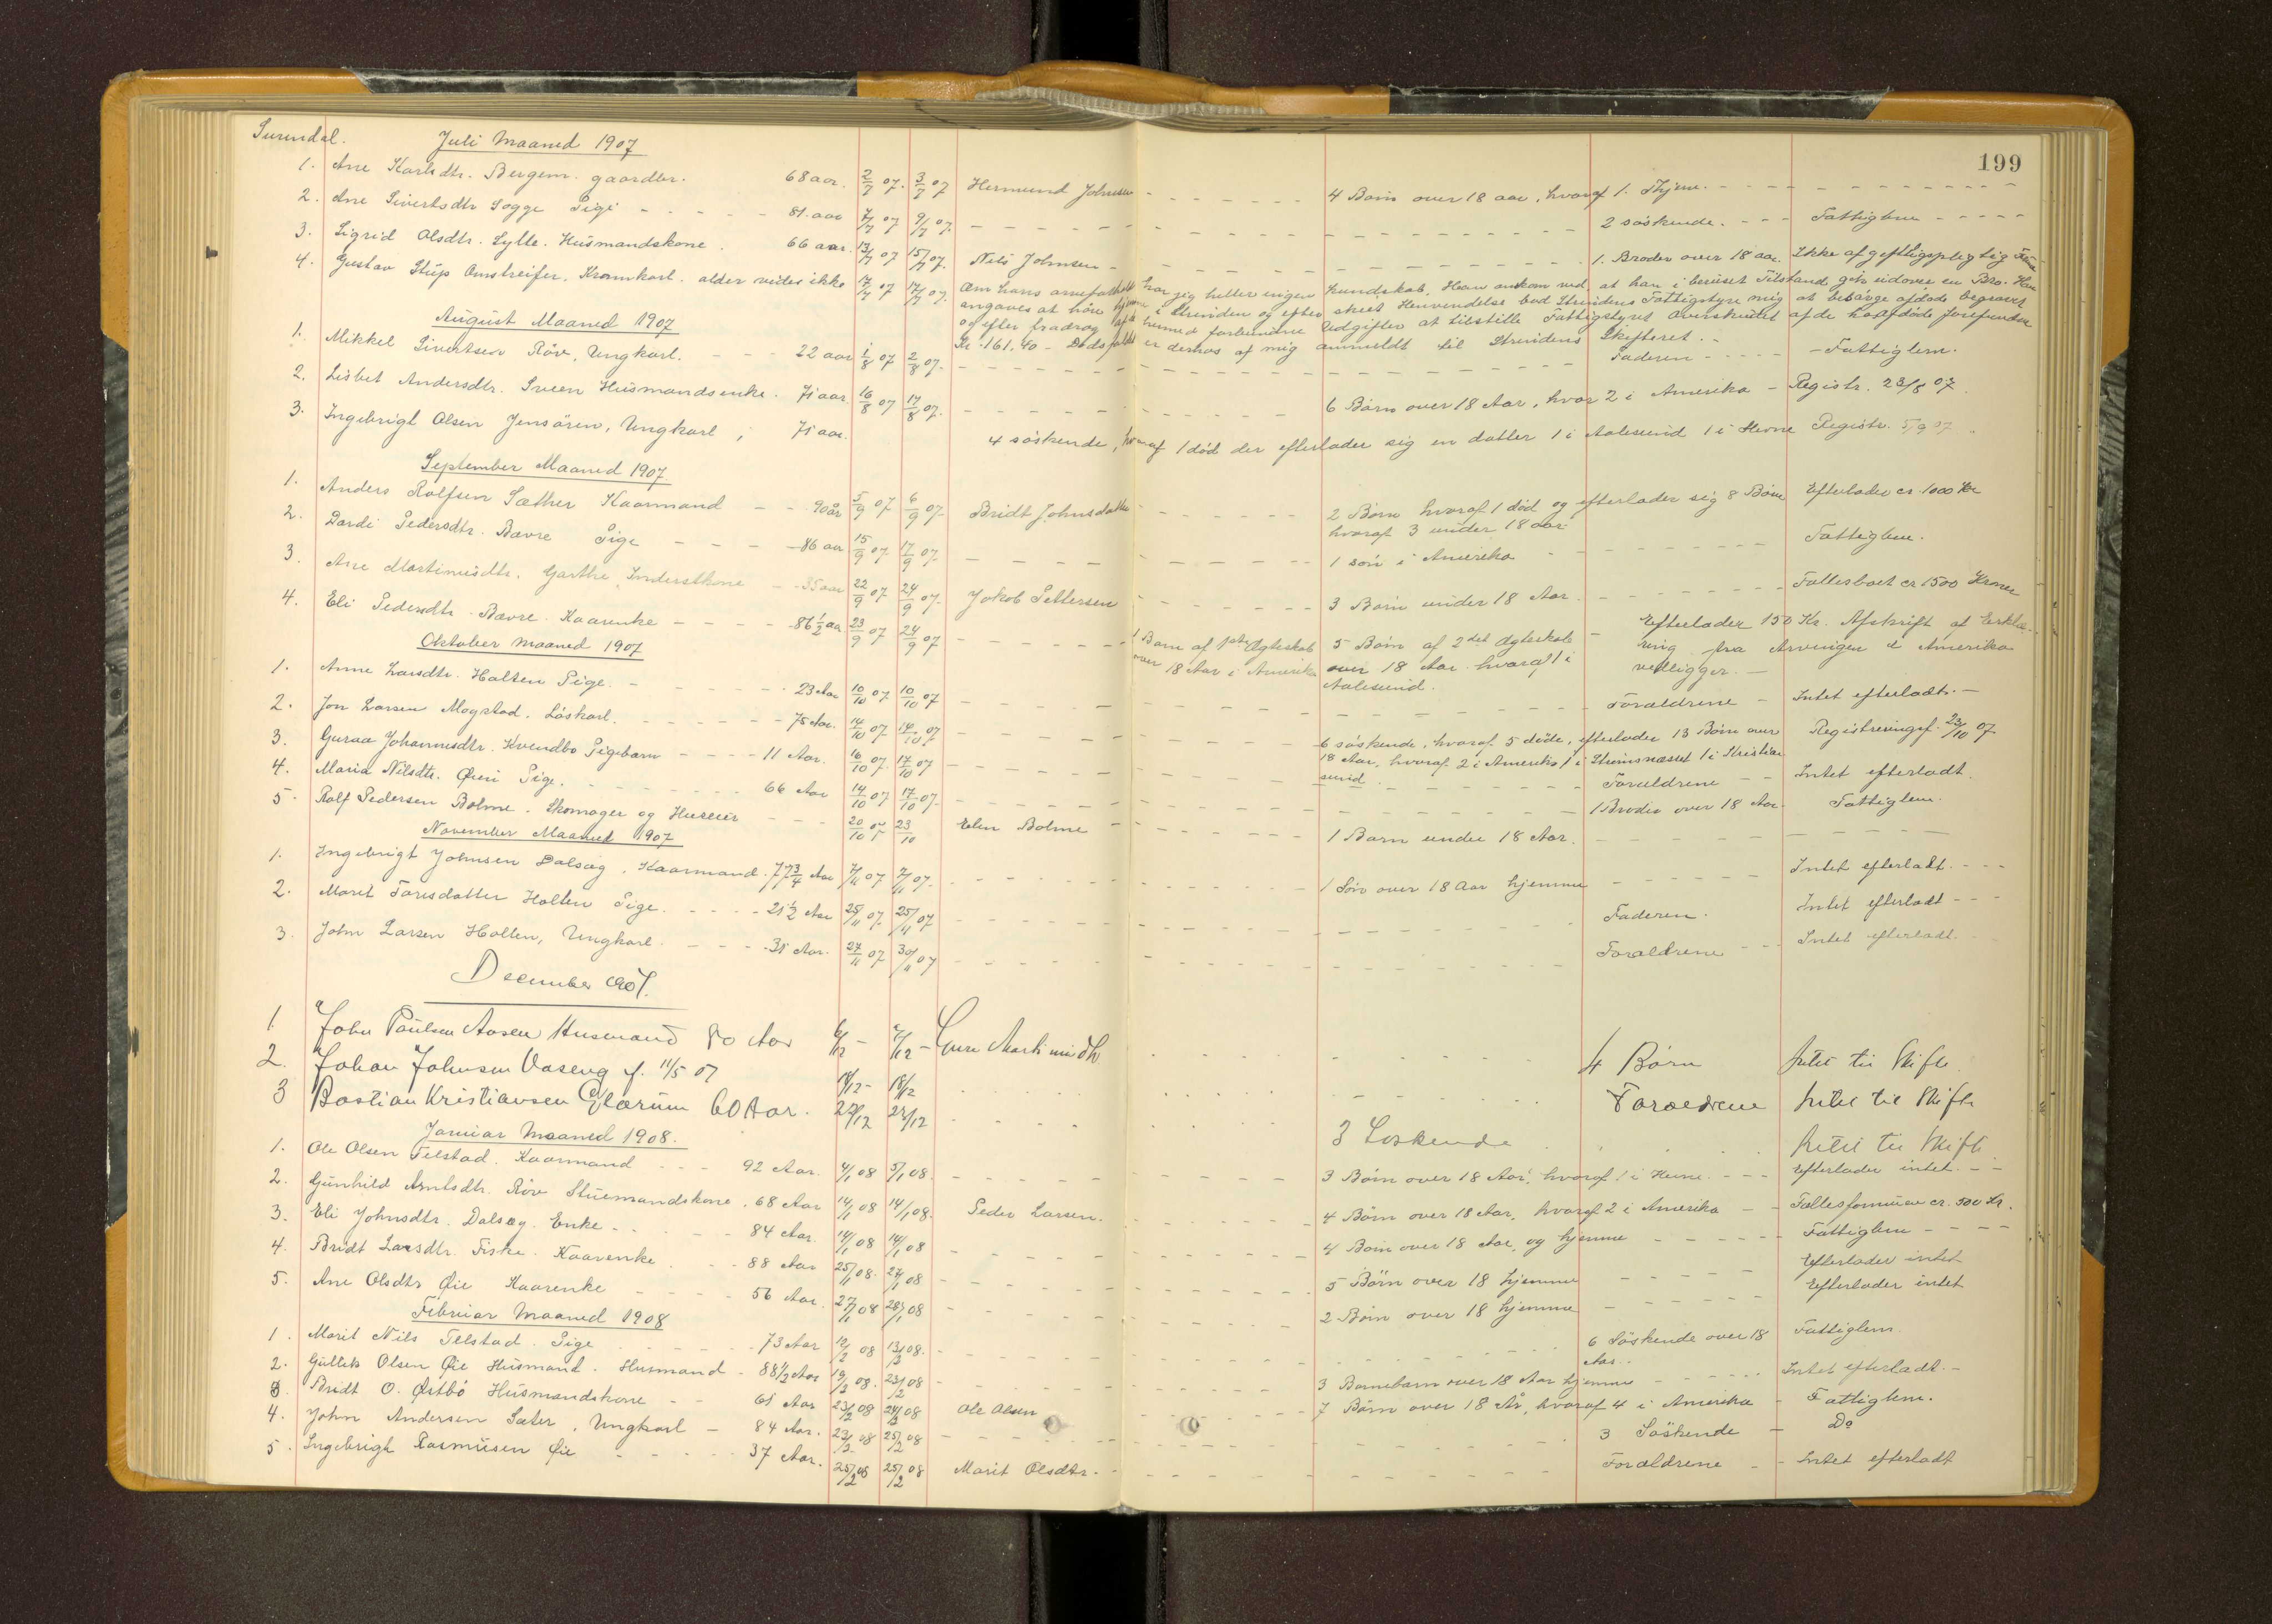 Surendal. Juli Maaned 1907
199
1. Ane Karlsdtr. Bergem. gaardbr. 68 aar. 2/7 07. 3/7 07 Hermund Johnsen - - - 4 Børn over 18 aar, hvoraf 1. Hjeme. - - -
2. Ane Sivertsdtr Sogge Pige - - - 81. aar 7/7 07 9/7 07. - - - 2 søskende. - - - Fattiglem - - -
3. Sigrid Olsdtr. Sylte. Husmandskone. 66 aar. 13/7 07 15/7 07. Nils Johnsen - - - 1. Broder over 18 aar. Ikke afgeftigspligtig
4. Gustav Stüp Omstreifer. Kramkarl. alder vides ikke 17/7 07 17/7 07. Om hans arveforhold har jeg heller ingen Kundskab. Han omkom ved, at han i beruset Tilstand gik udover en Bro. Han
angaves at høre hjeme i Strinden og efter skeet Henvendelse bad Strindens Fattigstyre mig at besørge afdøde begravet
og efter fradrag af de hermed forbundne Udgifter at tilstille Fattigstyret Overskudet af de hos afdøde forefundne
Kr. 161,40 - Dødsfaldet er derhos af mig anmeldt til Strindens Skifteret. -
August Maaned 1907
1. Mikkel Sivertsen Røv, Ungkarl. - - - 22 aar 1/8 07 2/8 07. - - - Faderen - - - Fattiglem.
2. Lisbet Andersdtr. Sveen Husmandsenke. 71 aar 16/8 07 17/8 07. - - - 6 Børn over 18 Aar, hvor 2 i Amerika - Registr. 23/8 07.
3. Ingebrigt Olsen Jensøren, Ungkarl, 71 aar. 4 søskende, hvoraf 1 død der efterlader sig en datter 1 i Aalesund 1 i Hevne Registr. 5/9 07
September Maaned 1907.
1. Anders Rolfsen Sæther Kaarmand - - 90 år 5/9 07 6/9 07. Bridt Johnsdatter - - - 2 Børn hvoraf 1 død og efterlader sig 8 Børn Efterlader cr. 1000 Kr
hvoraf 3 under 18 aar.
2. Dordi Pedersdtr. Bævre Pige - - - 86 aar 15/9 07 17/9 07. - - - 1 søn i Amerika - - - Fattiglem.
3. Ane Martinusdtr. Garthe Inderstkone - - 35 aar 22/9 07 24/9 07. Jakob Pettersen - - - 3 Børn under 18 Aar. - - - Fællesboet cr 1500 Kroner
4. Eli Pedersdtr. Bævre. Kaarenke - - - 86 1/2 aar 23/9 07 24/9 07 - - - 1 Barn af 1ste Ægteskab 5 Børn af 2det Ægteskab - Efterlader 150 Kr. Afskrift af Erklæ-
over 18 Aar i Amerika over 18 Aar hvoraf 1 i ring fra Arvingen i Amerika
Aalesund. vedligger. -
Oktober Maaned 1907
1. Anne Larsdtr. Halten Pige. - - - 23 Aar 10/10 07 10/10 07 - - - Forældrene - Intet efterladt. -
2. Jon Larsen Mogstad. Løskarl. - - - 75 Aar. 14/10 07 14/10 07 - - - 6 søskende, hvoraf 5 døde, efterlader 13 Børn over Registreringsf. 23/10 07.
18 Aar, hvoraf 2 i Amerika 1 i Strømsnæsset 1 i Kristian
sund
3. Guraa Johannesdtr. Kvendbo Pigebarn - - - 11 Aar. 16/10 07. 17/10 07 - - - Forældrene - - Intet efterladt.
4. Maria Nilsdtr. Øvri Pige. - - - 66 Aar 14/10 07 17/10 07. - - - 1 Broder over 18 Aar Fattiglem.
5. Rolf Pedersen Bolme. Skomager og Huseier - - - 20/10 07 23/10 Elen Bolme - - - 1 Barn under 18 Aar. - - -
November Maaned 1907
1. Ingebrigt Johnsen Dalsæg, Kaarmand. 77 3/4 Aar 7/11 07 7/11 07. - - - 1 Søn over 18 Aar hjemme - - - Intet efterladt. - - -
2. Marit Toresdatter Holten Pige. - - - 21 1/2 Aar 25/11 07. 25/11 07 - - - Faderen. Intet efterladt - - -
3. John Larsen Holten, Ungkarl. - - - 31 Aar. 27/11 07 30/11 07 - - - Forældrene - - - Intet efterladt.
December 1907.
1 John Paulsen Aasen Husmand 80 Aar 6/12 - 7/12 - Martinusdtr - - - 4 Børn Intet til Skifte
2. Johan Johnsen Vaseng f. 11/5 07 18/12 - 18/12 - - - Forældrene Intet til Skifte
3 Bastian Kristiansen Glærum 60 Aar. 22/12 27/12 - - - 3 Søskende Intet til Skifte
Januar Maaned 1908.
1. Ole Olsen Telstad. Kaarmand - - - 92 Aar. 4/1 08 5/1 08. - - - 3 Børn over 18 Aar, hvoraf 1 i Hevne. - - - Efterlader intet. - -
2. Gunhild Arntsdtr. Røv Stuemandskone. 68 Aar 14/1 08 14/1 08. Peder Larsen. - - - 4 Børn over 18 Aar, hvoraf 2 i Amerika - - Fællesformuen cr. 500 Kr.
3. Eli Johnsdtr. Dalsæg. Enke - - 84 Aar 14/1 08 14/1 08 - - - 4 Børn over 18 Aar, og hjemme - - - Fattiglem - - -
4. Bridt Larsdtr. Fiske. Kaarenke. - - 88 Aar 25/1 08. 27/1 08 - - - 5 Børn over 18 hjemme - - - Efterlader intet
5. Ane Olsdtr Øie Kaarenke - - - 56 Aar. 27/1 08 28/1 08 - - - 2 Børn over 18 hjemme - - - Efterlader intet
Februar Maaned 1908
1. Marit Nils Telstad. Pige - - - 73 Aar 12/2 08 13/2 08. - - - 6 Søskende over 18 Fattiglem
Aar. -
2. Gullik Olsen Øie Husmand. Husmand - 88 1/2 Aar 19/2 08. 23/2 08 - - - 3 Barnebarn over 18 Aar hjemme - - - Intet efterladt. -
3. Bridt O. Østbø Husmandskone - - 61 Aar 23/2 08 24/2 08 Ole Olsen - - - 7 Børn over 18 År, hvoraf 4 i Amerika - Fattiglem.
4. John Andersen Sæter, Ungkarl - 84 Aar. 23/2 08 25/2 08 - - - 3 Søskende - Do
5. Ingebrigt Rasmusen Øie - - - 37 Aar. 25/2 08 25/2 08 Marit Olsdtr. - - - Forældrene - - Intet efterladt